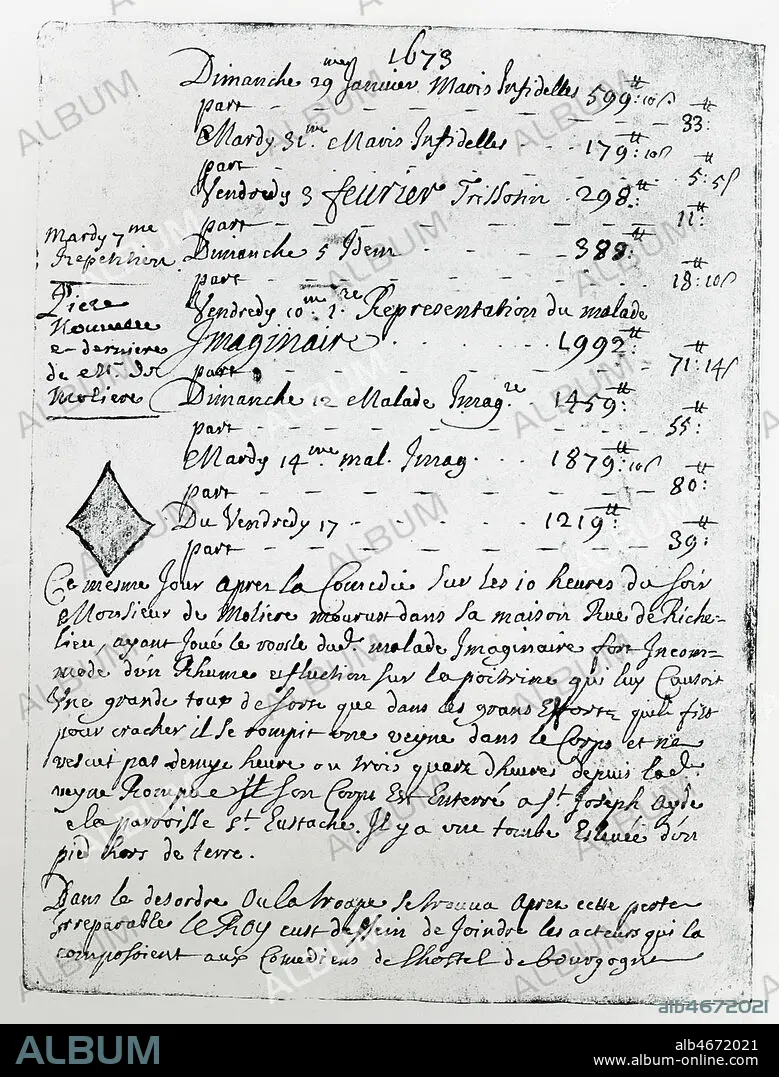 1673
Dimanche 29mes Janvier Maris Infidelles 599tt:10s
part 33tt:
Mardy 31.me Maris Infidelles 179tt:10s
part 5tt:5s
Vendredy 3 feurier Trissotin 298:tt
part 11tt:
Mardy 7me
Repetition.
Dimanche 5 Idem 388:tt
part 18tt:10s
Piece
Nouvelle
e derniere
de Mr. de
Moliere
Vendredy 10.me 1.re Representation du malade
Imaginaire 1992:tt
part 71tt:14s
Dimanche 12 Malade Imag.re 1459:tt
part 55tt:
Mardy 14.me mal. Imag. 1879tt:10s
part 80tt:
Du Vendredy 17 1219tt:
part 39tt:
Ce mesme Jour apres la Comedie sur les 10 heures du soir
Monsieur de Moliere mourust dans sa maison Rue de Riche-
lieu, ayant Joué le roosle dud. malade Imaginaire fort Incom-
modé d'un Rhume et fluction sur la poitrine qui luy Causoit
Une grande toux de sorte que dans les grans Efforts qu'il fist
pour cracher il se rompit une veyne dans le Corps et ne
vescut pas demye heure ou trois quarz dheures depuis lad.
veyne Rompue Son Corps Est Enterré a St. Joseph ayde
de la parroisse St. Eustache. Il y a une tombe Eslevée d'un
pied hors de terre.
Dans le desordre Ou la troupe se trouva apres cette perte
Irreparable le Roy eust dessein de Joindre les acteurs qui la
composoient aux Comediens de lhostel de bourgogne
ALBUM
alb4672021
ALBUM
alb4672021
www.album-online.com